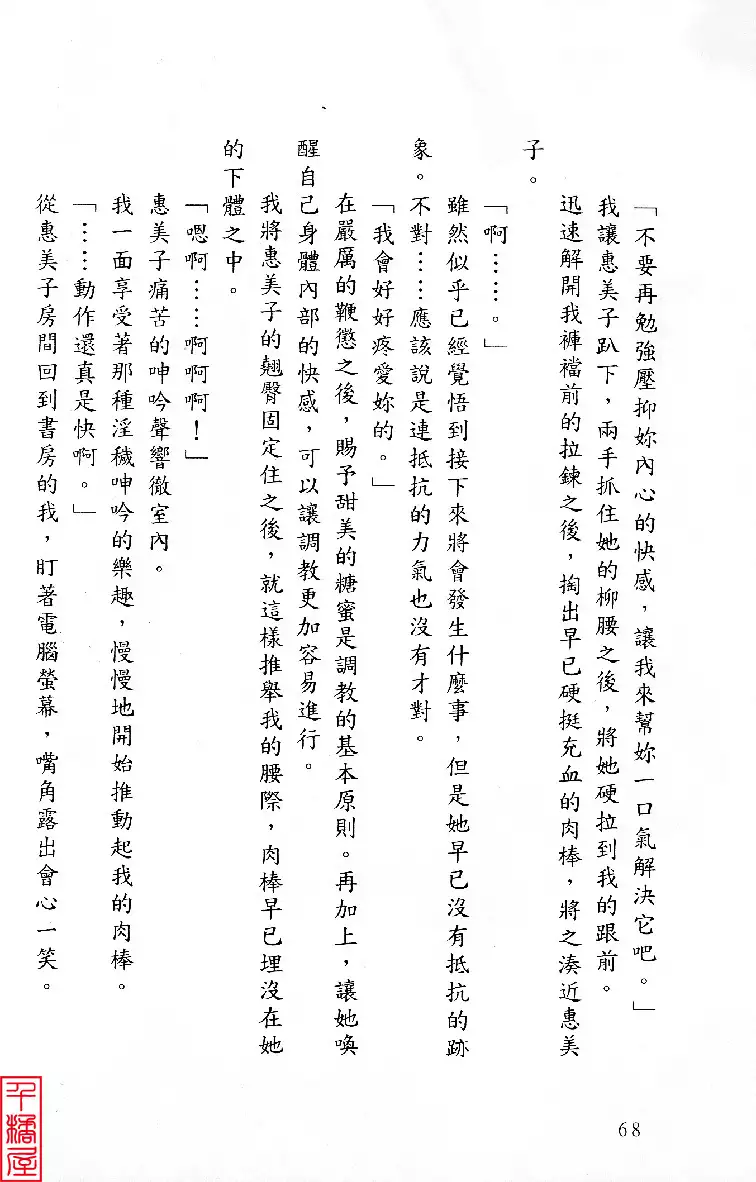 「不要再勉強壓抑妳內心的快感，讓我來幫妳一口氣解決它吧。」
我讓惠美子趴下，兩手抓住她的柳腰之後，將她硬拉到我的跟前。
迅速解開我褲襠前的拉鍊之後，掏出早已硬挺充血的肉棒，將之湊近惠美
子。
「啊……。」
雖然似乎已經覺悟到接下來將會發生什麼事，但是她早已沒有抵抗的跡
象。不對……應該說是連抵抗的力氣也沒有才對。
「我會好好疼愛妳的。」
在嚴厲的鞭懲之後，賜予甜美的糖蜜是調教的基本原則。再加上，讓她喚
醒自己身體內部的快感，可以讓調教更加容易進行。
我將惠美子的翹臀固定住之後，就這樣推舉我的腰際，肉棒早已埋沒在她
的下體之中。
「嗯啊……啊啊啊！」
惠美子痛苦的呻吟聲響徹室內。
我一面享受著那種淫穢呻吟的樂趣，慢慢地開始推動起我的肉棒。
「……動作還真是快啊。」
從惠美子房間回到書房的我，盯著電腦螢幕，嘴角露出會心一笑。
68
千橘屋